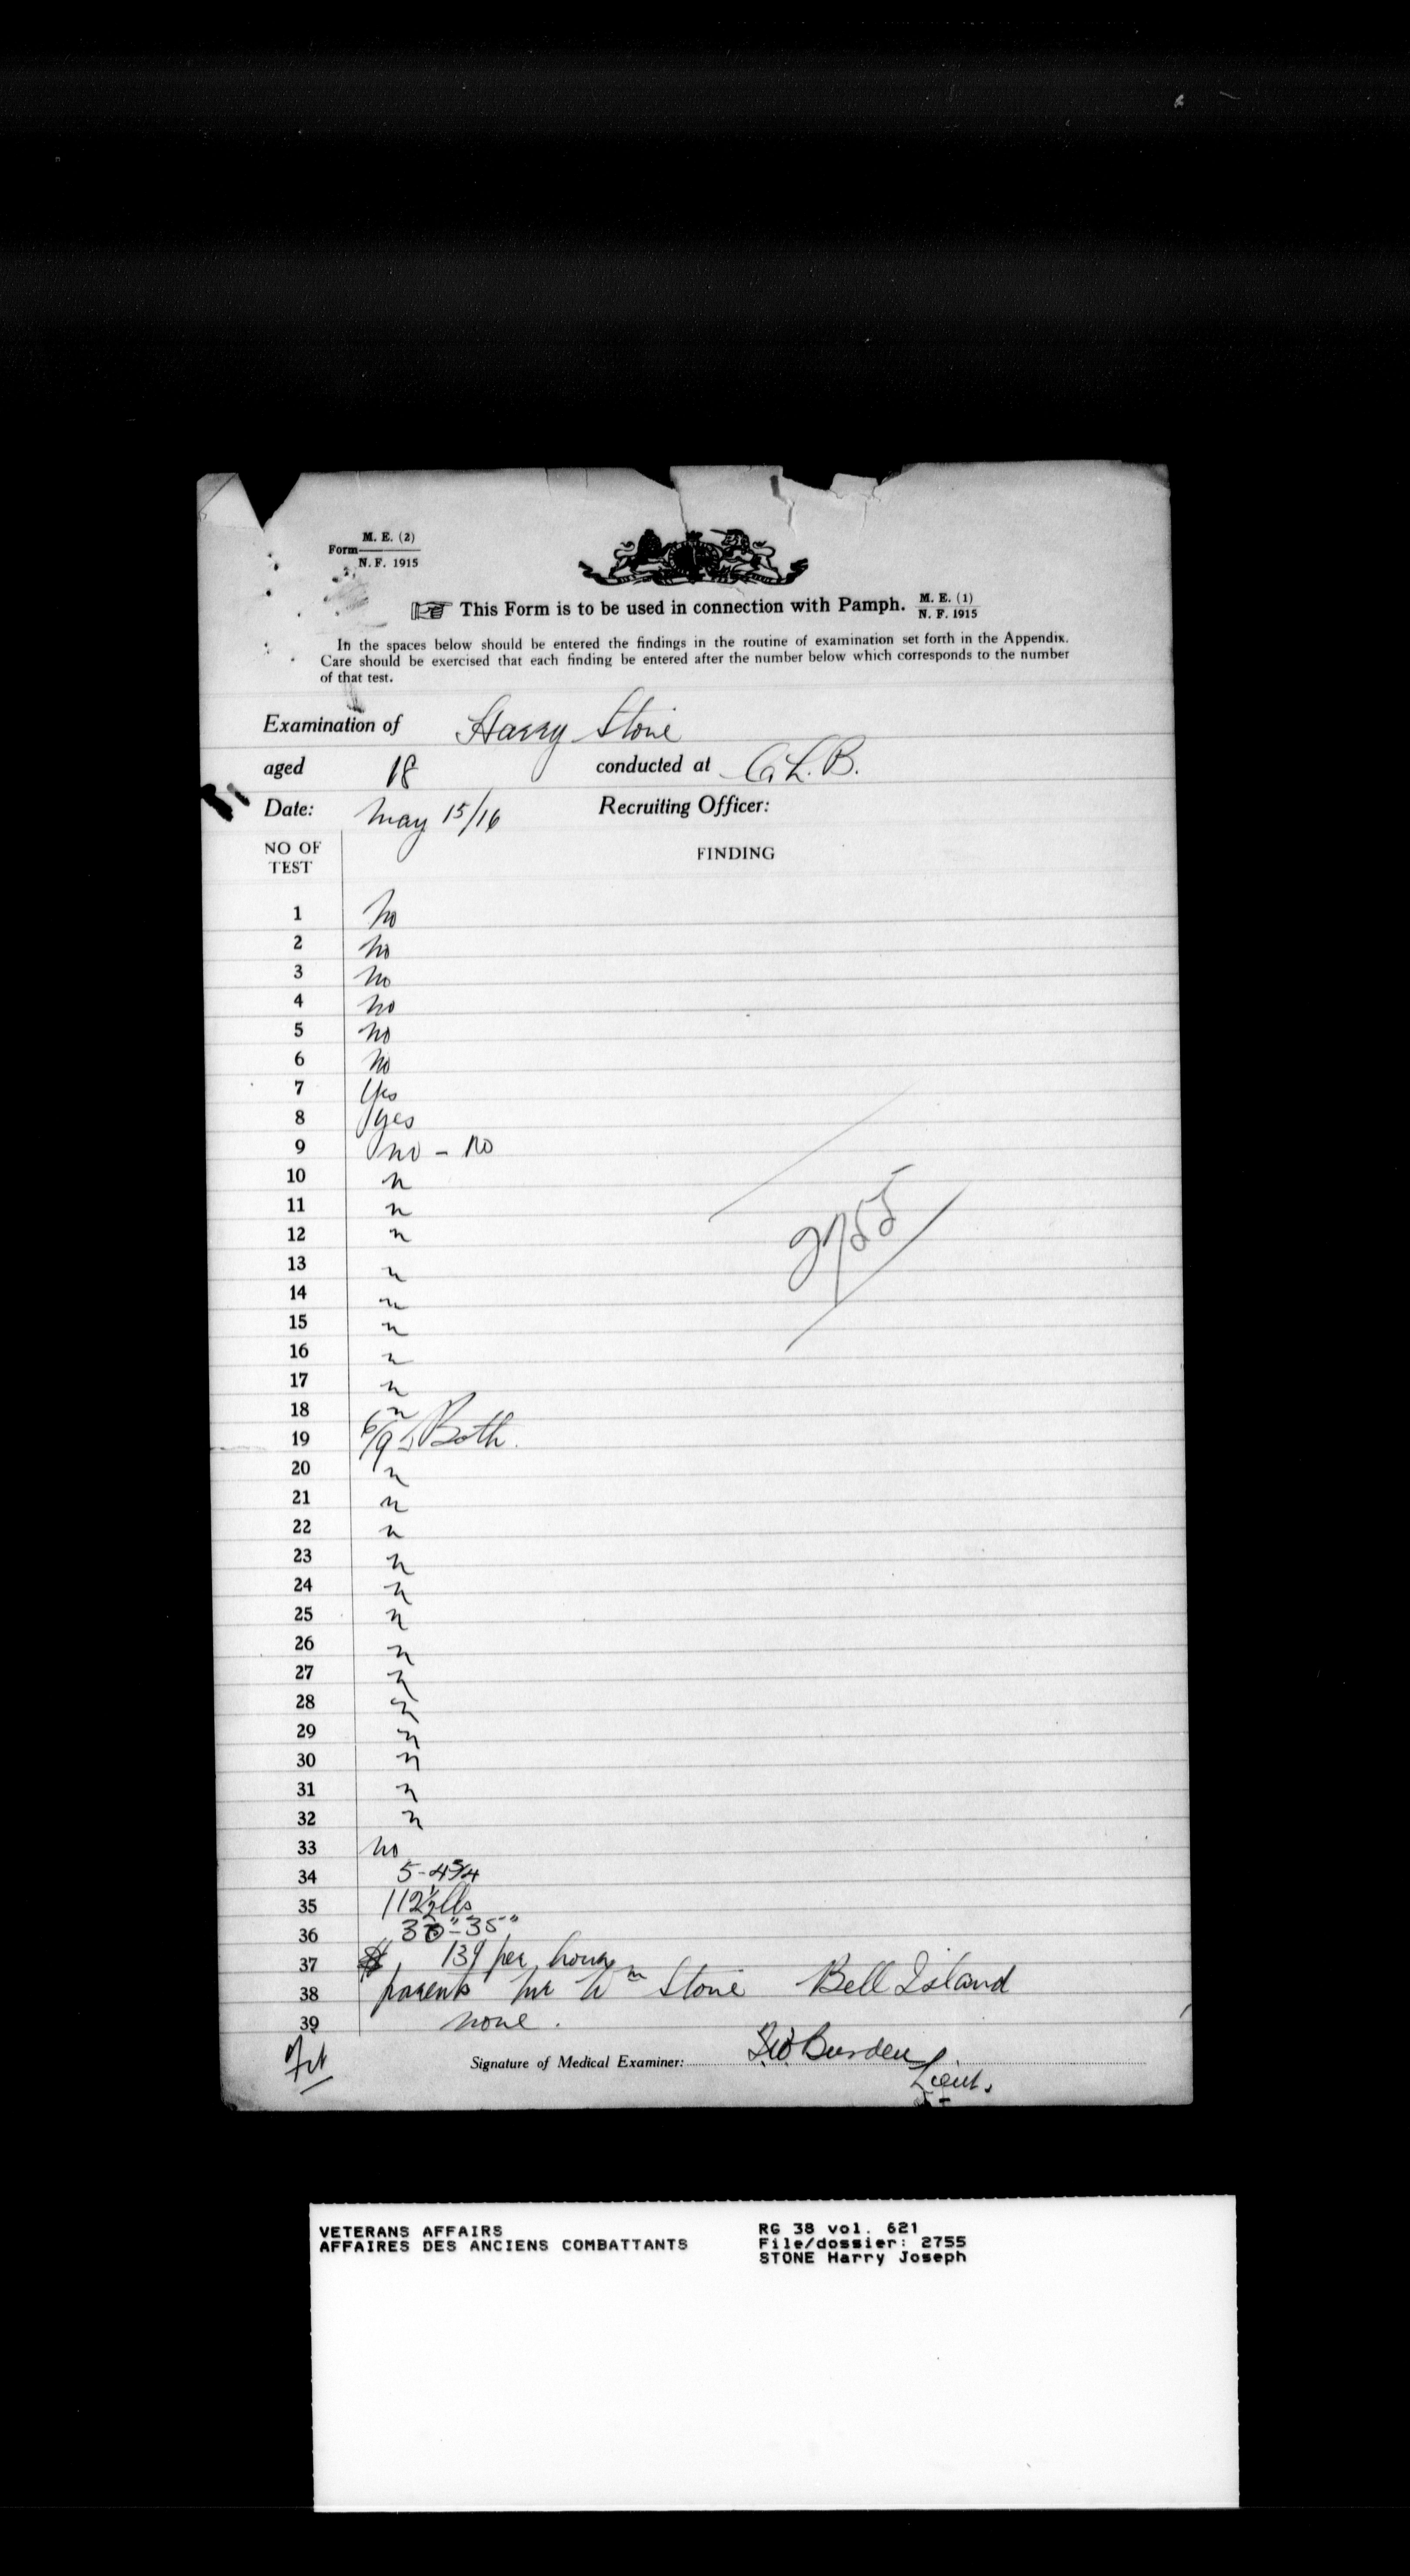 M. E. (2)
Form
N. F. 1915
This Form is to be used in connection with Pamph. M. E. (1)
N. F. 1915
In the spaces below should be entered the findings in the routine of examination set forth in the Appendix.
Care should be exercised that each finding be entered after the number below which corresponds to the number
of that test.
Examination of Harry Stone
aged 18 conducted at C. L. B.
Date: May 15/16 Recruiting Officer:
NO OF TEST FINDING
1 no
2 no
3 no
4 no
5 no
6 no
7 Yes
8 yes
9 no - no
10 n
11 n
12 n
2755
13 n
14 n
15 n
16 n
17 n
18 n
19 6/9 Both
20 n
21 n
22 n
23 n
24 n
25 n
26 n
27 n
28 n
29 n
30 n
31 n
32 n
33 no
34 5-4 3/4
35 112 1/2 lbs
36 35"
37 $ per hour
38 parents Mr Wm Stone Bell Island
39 none.
Fit
Signature of Medical Examiner: Burden
Lieut.
VETERANS AFFAIRS
AFFAIRES DES ANCIENS COMBATTANTS
RG 38 vol. 621
File/dossier: 2755
STONE Harry Joseph